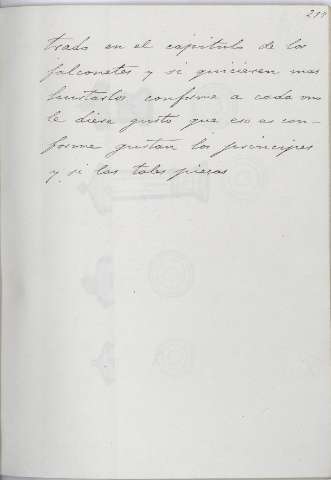 211
trado en el capitulo de los
falconetes y si quicieren mas
hustarlos conforme a cada uno
le diese gusto que eso es con-
forme gustan los principes
y si las tales piesas